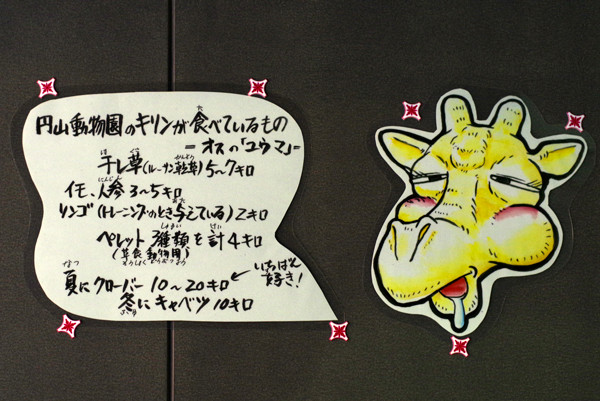 円山動物園のキリンが食べているもの
=オスの「ユウマ」=
干し草(ルーサン乾草)5~7キロ
イモ、人参 3~5キロ
リンゴ(トレーニングのとき与えている)2キロ
ペレット 3種類を計4キロ
(草食動物園)
夏にクローバー 10~20キロ ← いちばん好き!
冬にキャベツ 10キロ